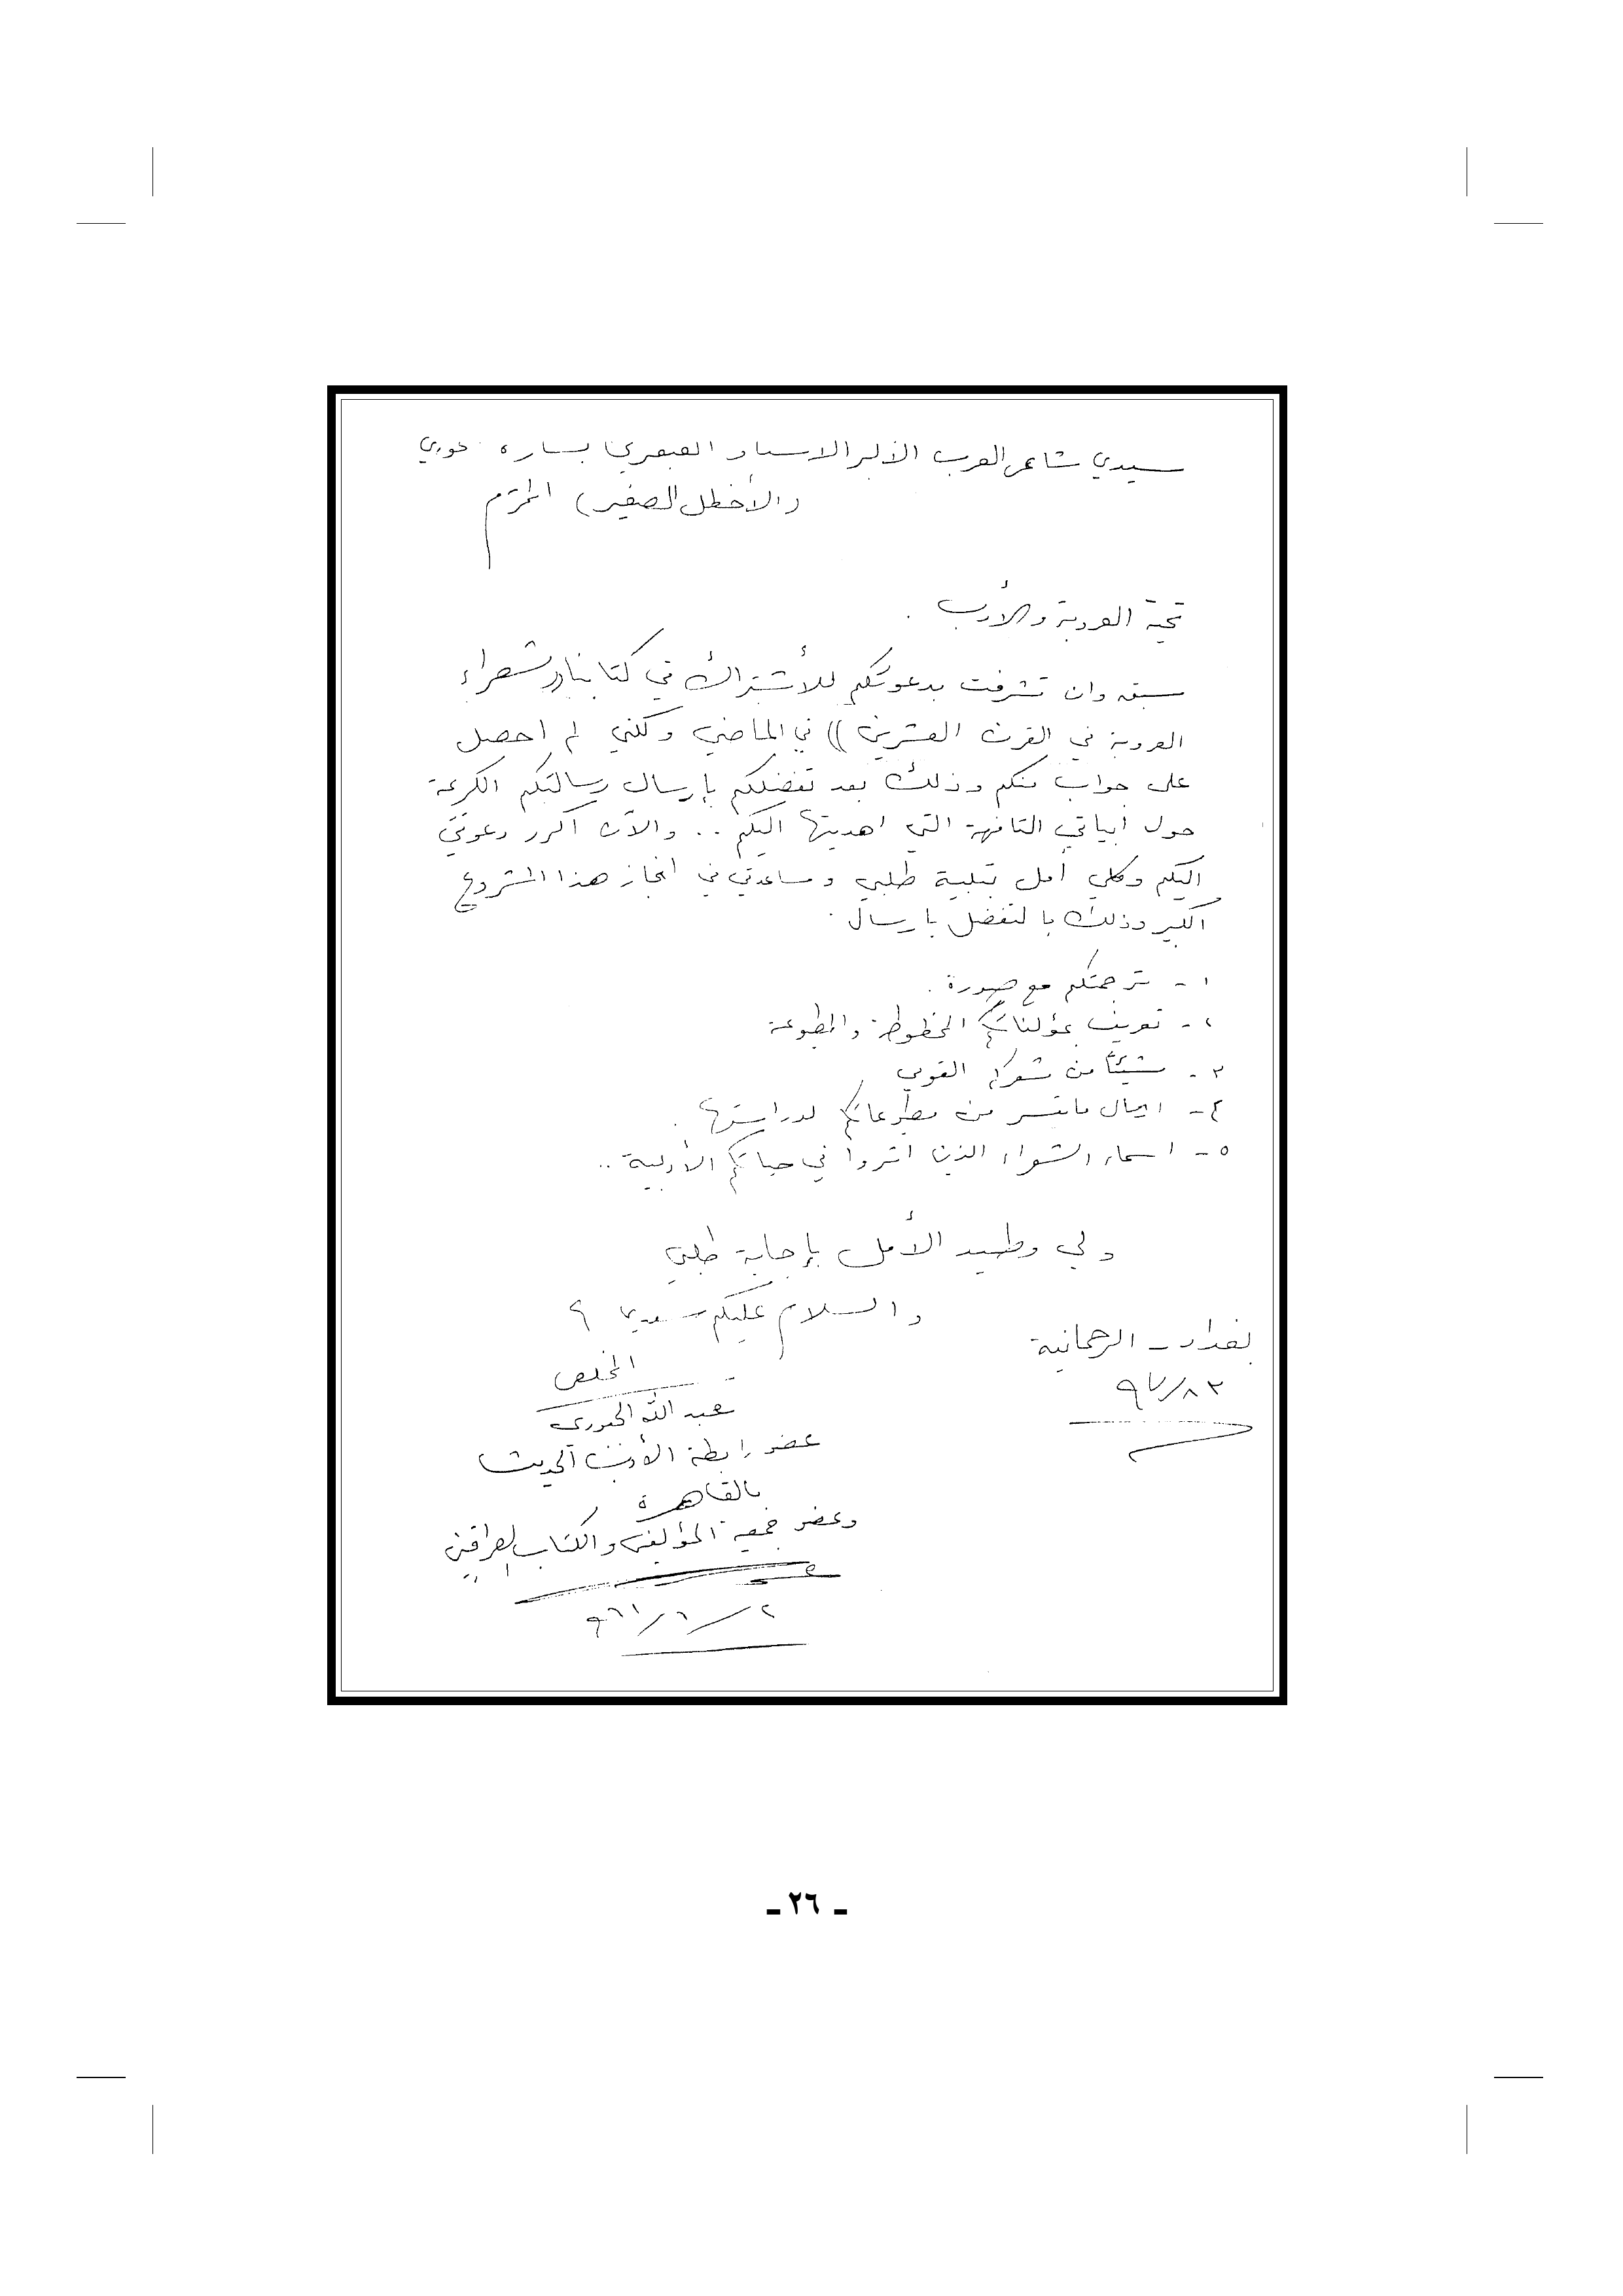 سيدي شاعر العرب الأكبر الاستاذ العبقري بشاره خوري
(الأخطل الصغير) المحترم
تحية العروبة والأدب .
سبق وان تشرفت بدعوتكم للأشتراك في كتابنا ((شعراء
العروبة في القرن العشرين)) في الماضي ولكني لم احصل
على جواب منكم وذلك بعد تفضلكم بإرسال رسالتكم الكريمة
حول ابياتي التافهة التي اهديتها اليكم .. والآن اكرر دعوتي
اليكم وكلي أمل بتلبية طلبي ومساعدتي في انجاز هذا المشروع
الكبير وذلك بالتفضل بارسال .
١ - ترجمتكم مع صورة .
٢ - تعريف بمؤلفاتكم المخطوطة والمطبوعة
٣ - شيئاً من شعركم القومي
٤ - ارسال ما تيسر من مطبوعاتكم لدراستها .
٥ - اسماء الشعراء الذين اثروا في حياتكم الأدبية ..
ولي وطيد الأمل بإجابة طلبي
والسلام عليكم سيدي ؟
بغداد - الرحمانية
المخلص
عبد الله الجبوري
عضو رابطة الأدب الحديث
بالقاهرة
وعضو جمعية المؤلفين والكتاب العراقيين
٢ / ٦ / ٩٦١
- ٢٦ -